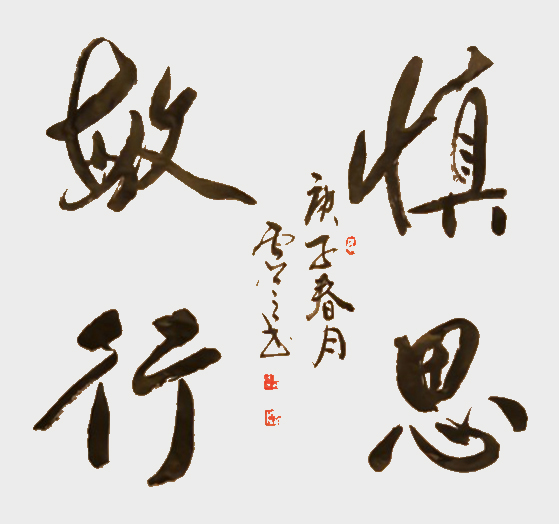 慎思
敏行
庚子春月